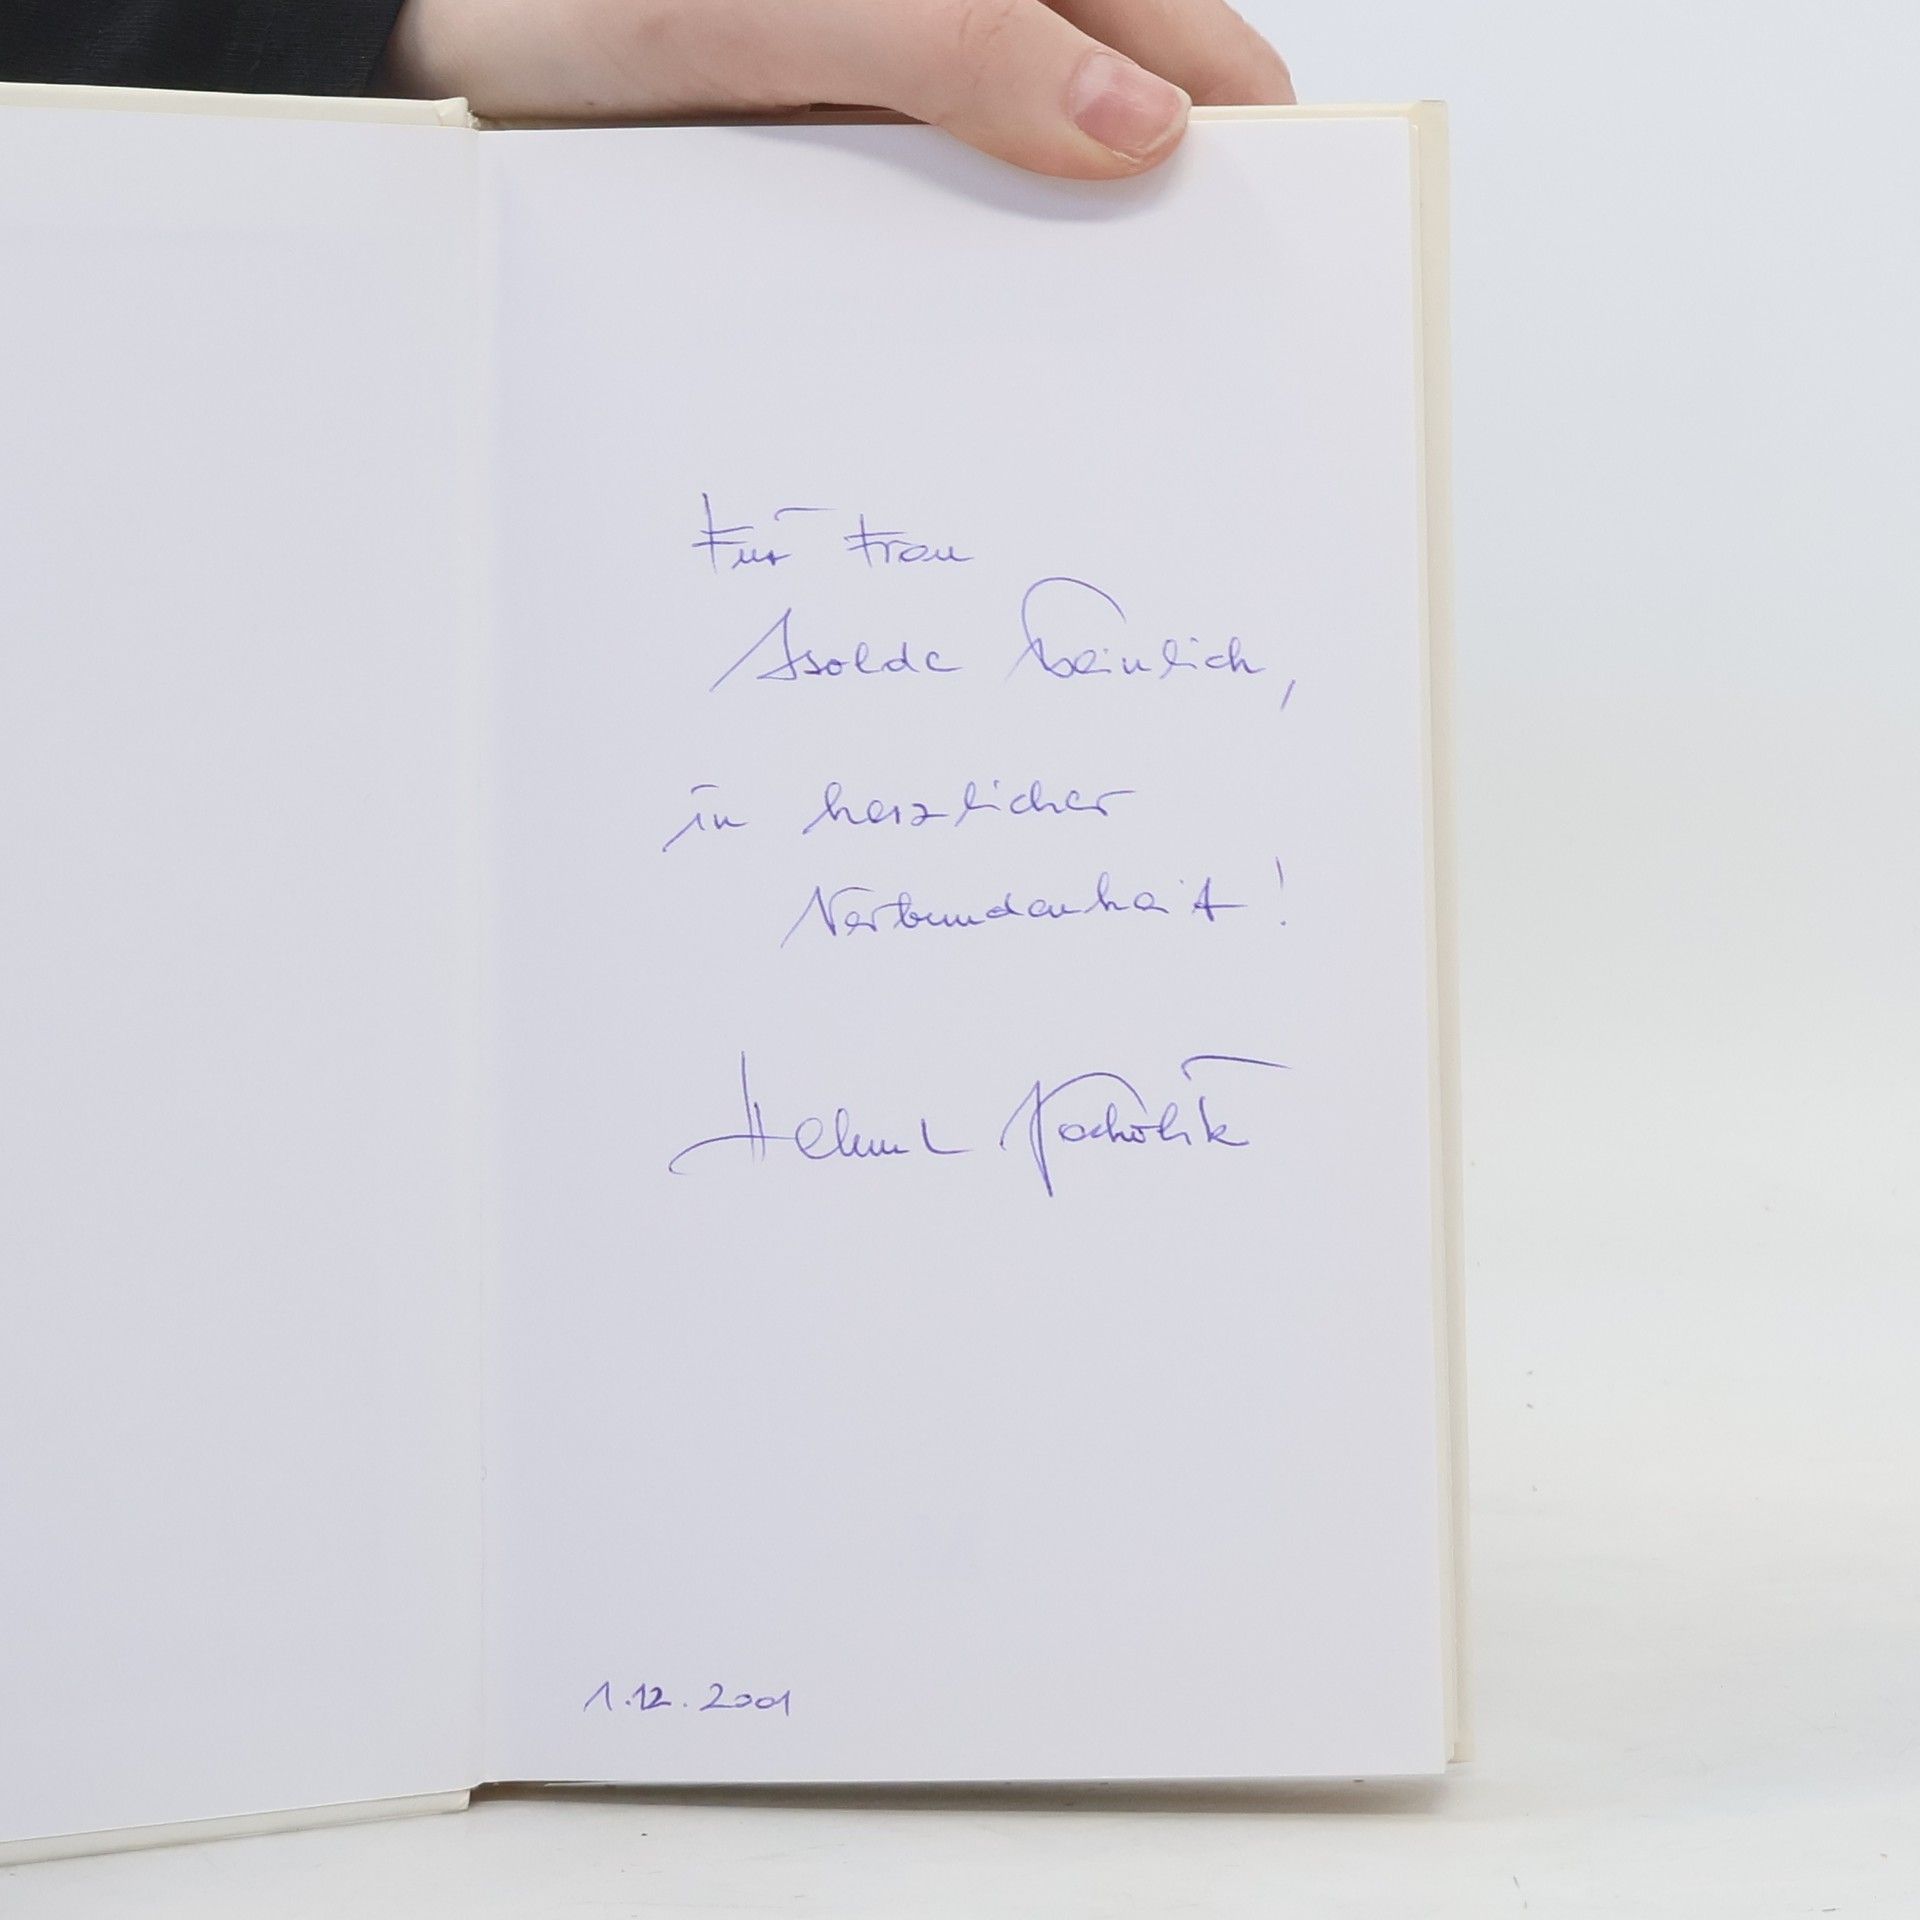 Für Frau
Isolde
in herzlicher
Verbundenheit!
Helmut
1.12.2001